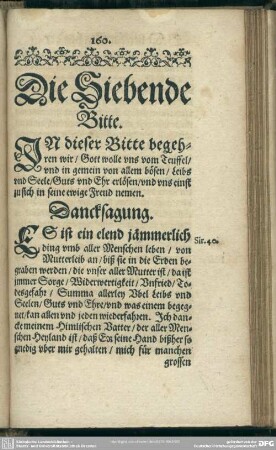 160.
Die Siebende
Bitte.
IN dieser Bitte begeh-
ren wir / Gott wolle vns vom Teuffel /
vnd in gemein von allem bösen / Leibs
vnd Seele / Guts vnd Ehr erlösen / vnd vns einst
zu sich in seine ewige Freud nemen.
Dancksagung.
ES ist ein elend jämmerlich
ding vmb aller Menschen leben / von
Mutterleib an / biß sie in die Erden be-
graben werden / die vnser aller Mutter ist / da ist
jmmer Sorge / Widerwertigkeit / Vnfried / To-
desgefahr / Summa allerley Vbel Leibs vnd
Seelen / Guts vnd Ehre / vnd was einem begeg-
net / kan allen vnd jeden wiederfahren. Ich dan-
cke meinem Himlischen Vatter / der aller Men-
schen Heyland ist / daß Er seine Hand bißher so
gnedig vber mir gehalten / mich für manchen
grossen
Sir. 40.